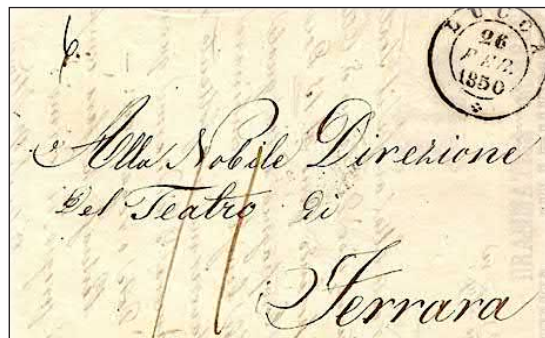 LUCCA
26
FEB.
1850
Alla Nobile Direzione
Del Teatro di
Ferrara